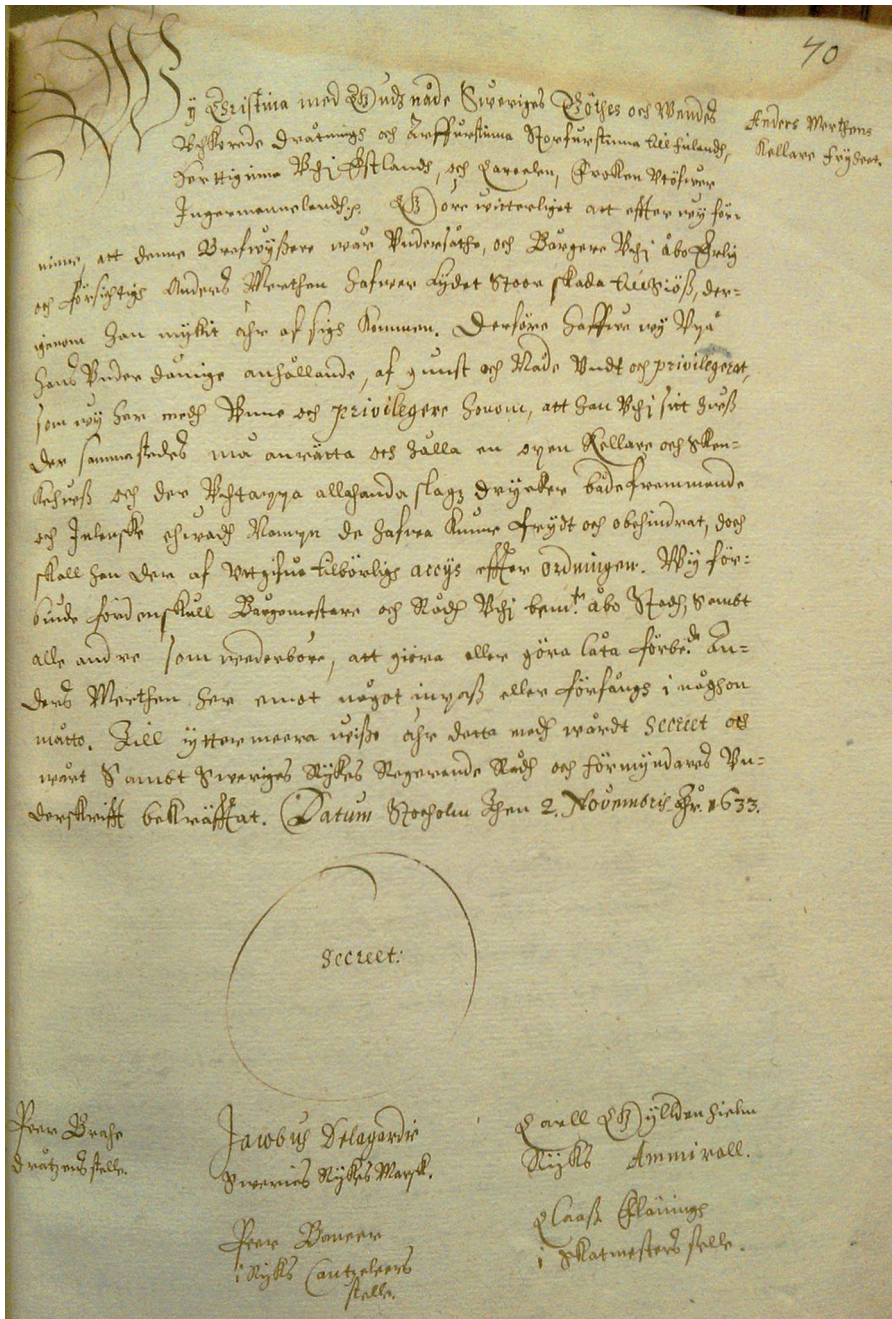 70
Wy Christina med Gudz nåde Sweriges Göthes och Wendes
Uthkorade Dråtningh och Arffurstinna Storfurstinna till Finlandh,
Herttiginna Uthj Estlandh, och Carelen, Fröken Utöfwer
Ingermannelandh. Göre witterliget att effter wij för-
nimme, att denne Brefwijsere wår Undersåthe, och Borgere Uthj Åbo Ährlig
och försichtigh Anders Merthen hafwer Lydet Stoor skada till Siöß, der-
igenom han mykit ähr af sigh kommen. Derföre haffwe wy Uppå
hans Underdånige anhållande, af gunst och Nåde Undt och privilegerat,
som wy her medh Unne och privilegere honom, att han Uthj sitt huuß
der sammestedes må anrätta och hålla en open Kellare och Sken-
kehuuß och der Uthtappa allehanda slagz drycker både fremmende
och Inlenske ehwadh Nampn de hafwa kunne frijdt och obehindrat, doch
skall han der af Utgifwe tilbörligh accijs effter ordningen. Wij för-
biude fördenskull Borgemestare och Rådh Uthj bem:te Åbo Stadh, Sampt
alle andre som wederböre, att giöra eller göra låta förbe:de An-
ders Merthen her emot något inpaß eller förfångh i någhon
motto. Till yttermeera wisso ähr detta medh wårdt Secret och
wårt Sampt Sweriges Rijkes Regerende Rådh och förmyndares Un-
derskrifft bekräfftat. Datum Stocholm Then 2. Novembris Åhr. 1633.
Anders Merthens
Kellare frijheet.
Secreet:
Peer Brahe
Dråtzens stelle.
Jacobus Delagardie
Sweries Rijkes Marsk.
Carll Gylldenhielm
Rijks Ammirall.
Peer Baneer
i Rijks Cantzelers
stelle.
Claaß Flämingh
i Skatmesters stelle.